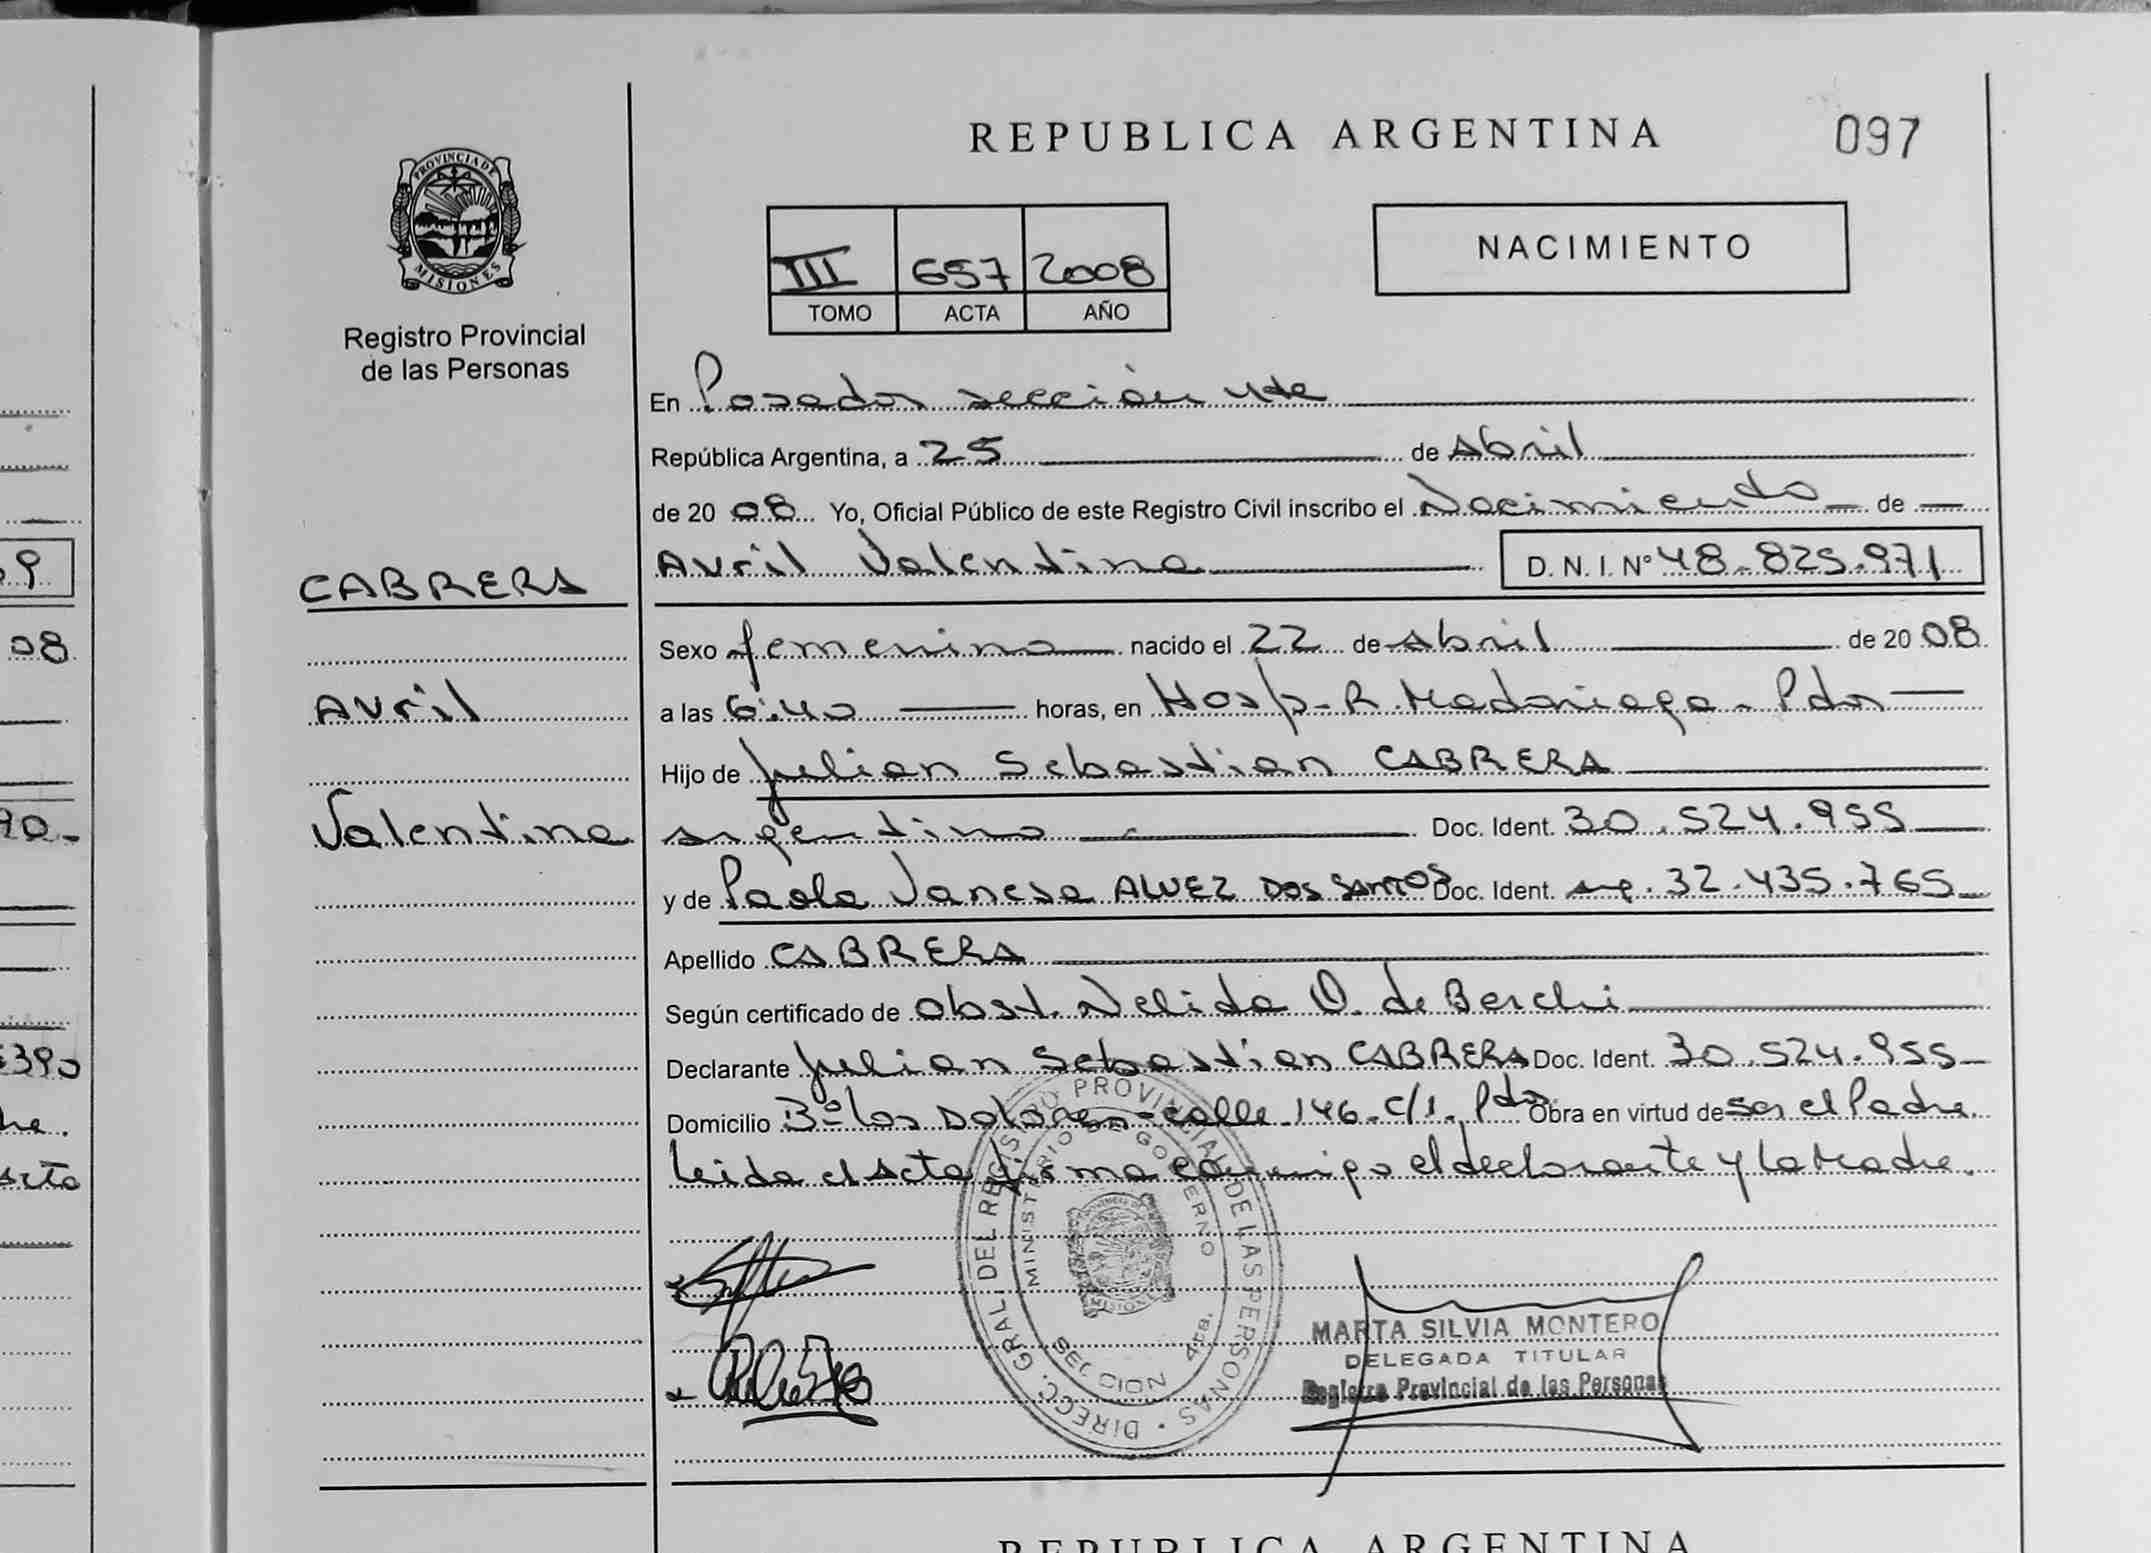 REPUBLICA ARGENTINA
097
PROVINCIA DE MISIONES
Registro Provincial
de las Personas
III 657 2008
TOMO ACTA AÑO
NACIMIENTO
En Posadas sección 4ta
República Argentina, a 25 de Abril
de 2008 Yo, Oficial Público de este Registro Civil inscribo el Nacimiento de
CABRERA
Avril Valentina D. N. I. Nº 48.825.971
Sexo femenino nacido el 22 de Abril de 2008
Avril
a las 6:40 horas, en Hosp. R. Madariaga - Pdas
Hijo de Julian Sebastian CABRERA
Valentina
argentino Doc. Ident. 30.524.955
y de Paola Vanesa ALVEZ DOS SANTOS Doc. Ident. arg. 32.435.765
Apellido CABRERA
Según certificado de Obst. Nelida O. de Berchi
Declarante Julian Sebastian CABRERA Doc. Ident. 30.524.955
Domicilio Bº los Dolores - calle 146 - c/1. Pdas Obra en virtud de ser el Padre
leida el Acta firma conmigo el declarante y la Madre.
DIREC. GRAL. DEL REGISTRO PROVINCIAL DE LAS PERSONAS
MINISTERIO DE GOBIERNO
MISIONES
SECCION 4ta.
MARTA SILVIA MONTERO
DELEGADA TITULAR
Registro Provincial de las Personas
REPUBLICA ARGENTINA
9
08
90-
390
re.
Acta